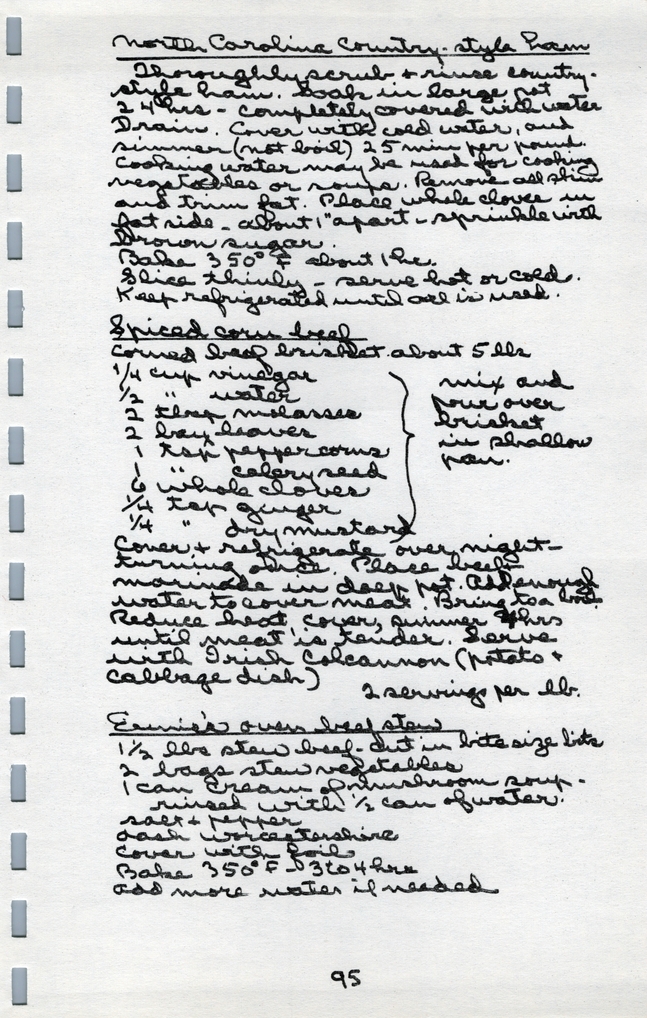 North Carolina Country-style Ham
Thoroughly scrub + rinse country-
style ham. Soak in large pot
24 hrs - completely covered with water
Drain. Cover with cold water, and
simmer (not boil) 25 min per pound.
Cooking water may be used for cooking
vegetables or soups. Remove all skin
and trim fat. Place whole cloves in
fat side - about 1" apart - sprinkle with
brown sugar.
Bake 350° F about 1 hr.
Slice thinly - serve hot or cold.
Keep refrigerated until all is used.
Spiced corn beef
Corned beef brisket about 5 lbs
1/4 cup vinegar
1/2 " water
2 tbsp molasses
2 bay leaves
1 tsp peppercorns
1 " celery seed
6 whole cloves
1/4 tsp ginger
1/4 " dry mustard
mix and
pour over
brisket
in shallow
pan.
Cover + refrigerate over night -
turning once. Place beef +
marinade in deep pot. Add enough
water to cover meat. Bring to a boil.
Reduce heat, cover, simmer 4 hrs
until meat is tender. Serve
with Irish Colcannon (potato +
cabbage dish)
2 servings per lb.
Ernie's oven beef stew
1 1/2 lbs stew beef - cut in bite size bits
2 bags stew vegetables
1 can Cream of mushroom soup -
rinsed with 1/2 can of water.
salt + pepper
dash worcestershire
cover with foil
Bake 350° F - 3 to 4 hrs
add more water if needed
95